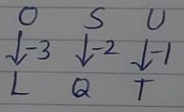 O S U
↓-3 ↓-2 ↓-1
L Q T